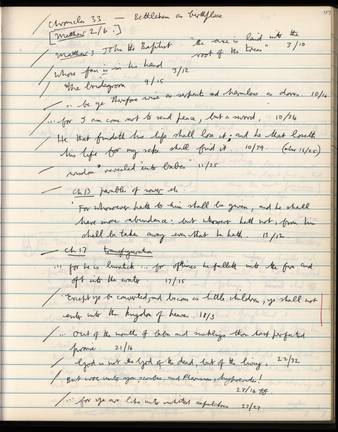 Chronicles 33 — Bethlehem as birthplace
[Matthew 2/6.]
Matthew 3 John the Baptist "the axe is laid unto the root of the trees" 3/10
Whose fan is in his hand 3/12
The bridegroom 9/15
... be ye therefore wise as serpents and harmless as doves. 10/16
... for I am come not to send peace, but a sword. 10/34
He that findeth his life shall lose it; and he that loseth
his life for my sake shall find it. 10/39 (also 16/25)
wisdom "revealed unto babes" 11/25
Ch 13 parable of sower etc
For whosoever hath to him shall be given, and he shall
have more abundance: but whosoever hath not, from him
shall be taken away even that he hath. 13/12
Ch 17 transfiguration
... for he is lunatick ... for ofttimes he falleth into the fire and
oft into the water 17/15
Except ye be converted, and become as little children, ye shall not
enter into the kingdom of heaven 18/3
... Out of the mouth of babes and sucklings thou hast perfected
praise 21/16
God is not the God of the dead, but of the living. 22/32
But woe unto you, scribes and Pharisees, hypocrites!
23/14 ff
... for ye are like unto whited sepulchres 23/27